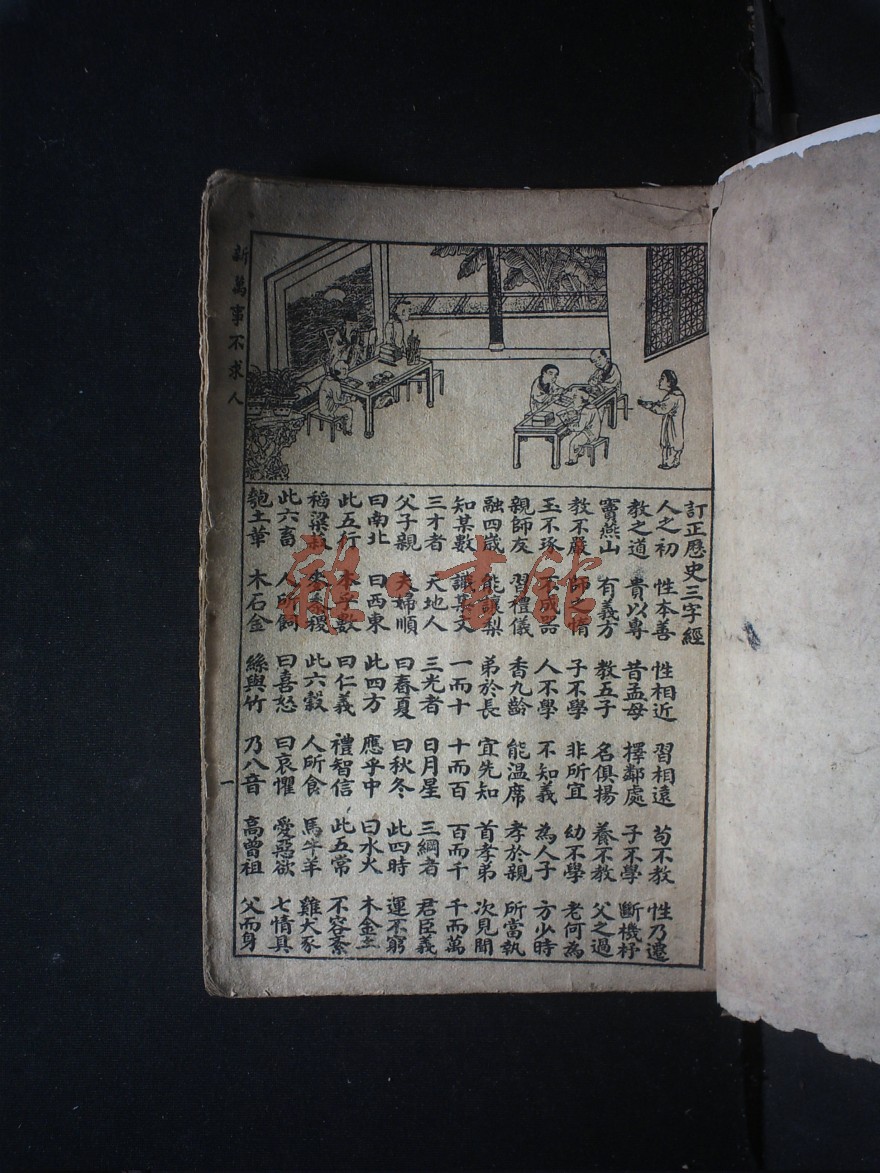 新萬事不求人
訂正歷史三字經
人之初 性本善 性相近 習相遠 苟不教 性乃遷
教之道 貴以專 昔孟母 擇鄰處 子不學 斷機杼
竇燕山 有義方 教五子 名俱揚 養不教 父之過
教不嚴 師之惰 子不學 非所宜 幼不學 老何為
玉不琢 不成器 人不學 不知義 為人子 方少時
親師友 習禮儀 香九齡 能温席 孝於親 所當執
融四歲 能讓梨 弟於長 宜先知 首孝弟 次見聞
知某數 識某文 一而十 十而百 百而千 千而萬
三才者 天地人 三光者 日月星 三綱者 君臣義
父子親 夫婦順 曰春夏 曰秋冬 此四時 運不窮
曰南北 曰西東 此四方 應乎中 曰水火 木金土
此五行 本乎數 曰仁義 禮智信 此五常 不容紊
稻粱菽 麥黍稷 此六穀 人所食 馬牛羊 雞犬豕
此六畜 人所飼 曰喜怒 曰哀懼 愛惡欲 七情具
匏土革 木石金 絲與竹 乃八音 高曾祖 父而身
一
雜·書館